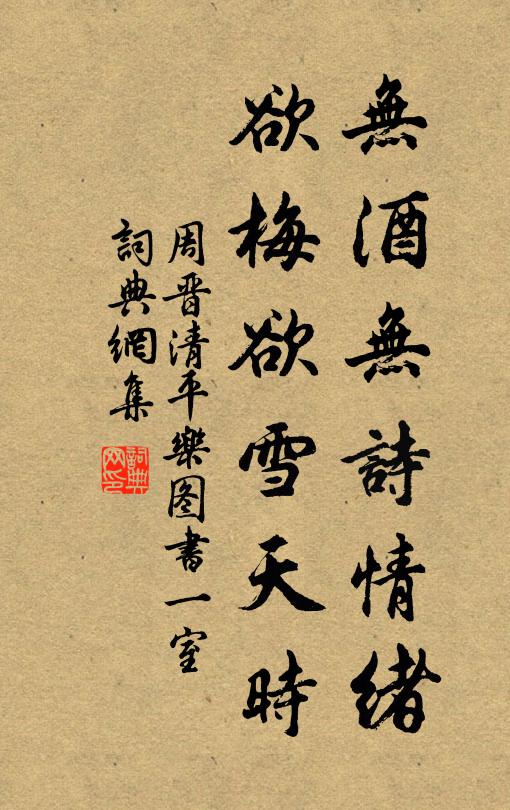 無酒無詩情緒
欲梅欲雪天時
周晋清平樂图書一室
詞典網集
詞典网印